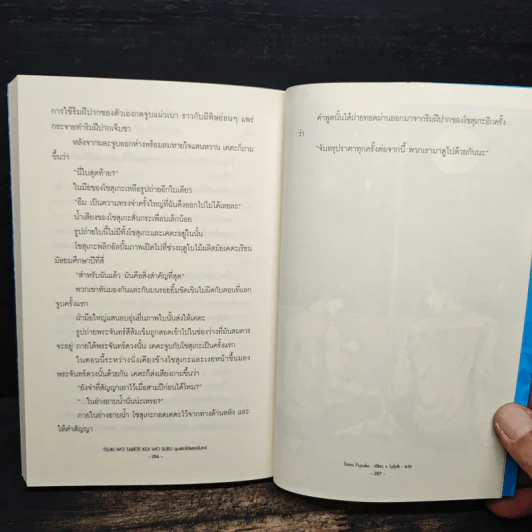 การใช้ริมฝีปากของตัวเองกดจูบแผ่วเบา ราวกับมีพิษอ่อนๆ แพร่
กระจายทำริมฝีปากเจ็บชา
หลังจากผละจูบออกห่างพร้อมลมหายใจแสนหวาน เคตะก็ถาม
ขึ้นว่า
"นี่ใบสุดท้าย?"
ในมือของโชสุเกะเหลือรูปถ่ายอีกใบเดียว
"อืม เป็นความทรงจำครั้งใหญ่ที่ฉันดึงออกไปไม่ได้เลยละ"
น้ำเสียงของโชสุเกะสั่นกระเพื่อมเล็กน้อย
รูปถ่ายใบนี้ไม่มีทั้งโชสุเกะและเคตะอยู่ในนั้น
โชสุเกะพลิกอัลบั้มภาพเปิดไปที่ช่วงฤดูใบไม้ผลิสมัยเคตะเรียน
มัธยมศึกษาปีที่สี่
"สำหรับฉันแล้ว มันคือสิ่งสำคัญที่สุด"
พวกเขาหันมองกันและกันบนรอยยิ้มขัดเขินไม่ผิดกับตอนที่แลก
จูบครั้งแรก
ฝ่ามือใหญ่แสนอบอุ่นยื่นภาพใบนั้นส่งให้เคตะ
รูปถ่ายพระจันทร์สีส้มเข้มถูกสอดเข้าไปในช่องว่างที่มันสมควร
จะอยู่ ภายใต้พระจันทร์ดวงนั้น เคตะจูบกับโชสุเกะเป็นครั้งแรก
ในตอนนี้ระหว่างนั่งเคียงข้างโชสุเกะและเงยหน้าขึ้นมอง
พระจันทร์ดวงนั้นด้วยกัน เคตะก็ส่งเสียงถามขึ้นว่า
"ยังจำที่สัญญาเอาไว้เมื่อสามปีก่อนได้ไหม?"
"...ในอ่างอาบน้ำนั่นน่ะเหรอ?"
ภายในอ่างอาบน้ำ โชสุเกะกอดเคตะไว้จากทางด้านหลัง และ
ให้คำสัญญา
TSUKI WO TABETE KOI WO SURU
- 286 -
คำพูดนั้นได้ถ่ายทอดผ่านออกมาจากริมฝีปากของโชสุเกะอีกครั้ง
ว่า
"จันทรุปราคาทุกครั้งต่อจากนี้ พวกเรามาดูไปด้วยกันนะ"
- 287 -